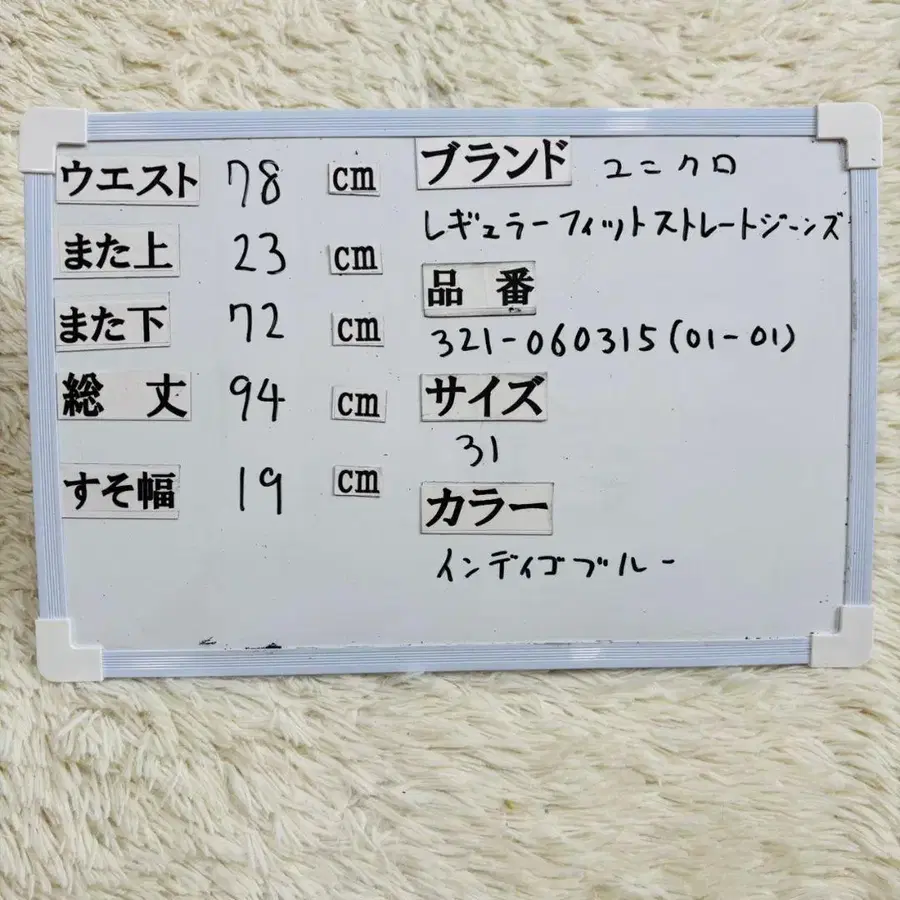 ウエスト 78 cm
また上 23 cm
また下 72 cm
総 丈 94 cm
すそ幅 19 cm
ブランド ユニクロ
レギュラーフィットストレートジーンズ
品 番
321-060315(01-01)
サイズ
31
カラー
インディゴブルー